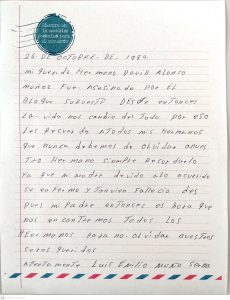 Siempre en
la memoria
26 DE OCTUBRE - DE - 1989
mi querido Hermano David Alonso
muñoz Fue Asesinado Por EL
Bloque Suburvié DESde entonces
La - vida nos cambio del Todo Por eso
Les Recuerdo ATodos mis Hermanos
que nunca debemos de olvidar anues
Tro Hermano siempre Recordarlo
Ya que mi madre devido alo acurrido
se enfermo y Tanvien Fallecio des
pues mi Padre entonces es hora que
nos encontremos Todos Los
Hermanos Para no olvidar nuestros
seres queridos
Atentamente Luis Emilio muñoz